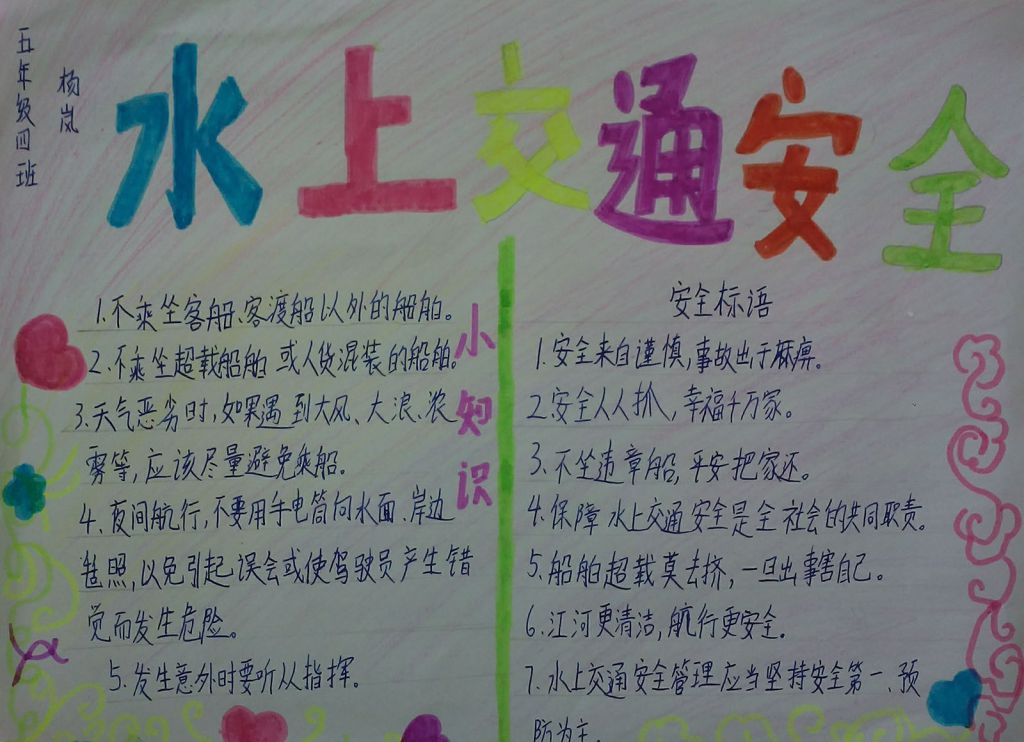 五年级四班
杨岚
水上交通安全
小知识
1.不乘坐客船、客渡船以外的船舶。
2.不乘坐超载船舶或人货混装的船舶。
3.天气恶劣时,如果遇到大风、大浪、浓
雾等,应该尽量避免乘船.
4.夜间航行,不要用手电筒向水面、岸边
照,以免引起误会或使驾驶员产生错
觉而发生危险。
5.发生意外时要听从指挥。
安全标语
1.安全来自谨慎,事故出于麻痹。
2.安全人人抓,幸福千万家。
3.不坐违章船,平安把家还。
4.保障水上交通安全是全社会的共同职责。
5.船舶超载莫去挤,一旦出事害自己。
6.江河更清洁,航行更安全.
7.水上交通安全管理应当坚持安全第一、预
防为主.